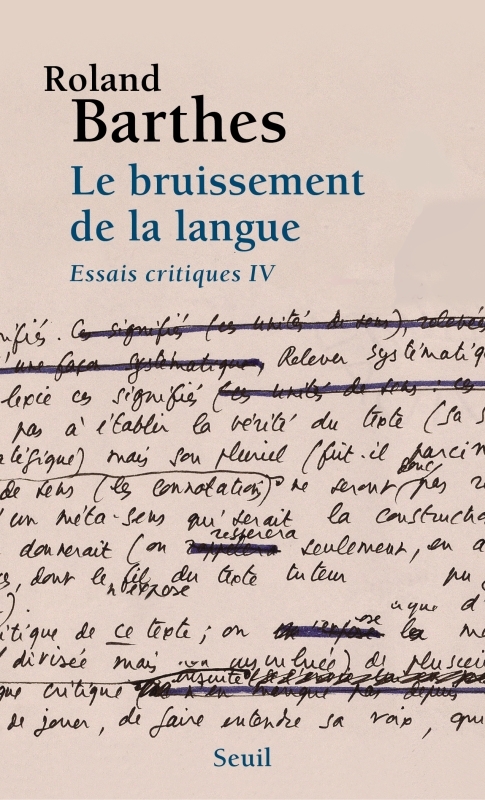 Roland
Barthes
Le bruissement
de la langue
Essais critiques IV
nifiés. Ces signifiés (ces unités de sens), relevés
d'une façon systématique, Relever systématiq
lexie ces signifiés (ces unités de sens : ces
pas à établir la vérité du texte (sa s
atégique) mais son pluriel (fût-il parcim
donc
de sens (les connotations) ne seront pas r
d'un méta-sens qu'serait la constructi
respectera
donnerait (on seulement, en a
, dont le fil du texte tuteur pu
n'expose
itique de ce texte ; on les m
divisée mais di plusieu
ensuite
que critique n'en manque pas depuis
de jouer, de faire entendre sa voix, qu
Seuil